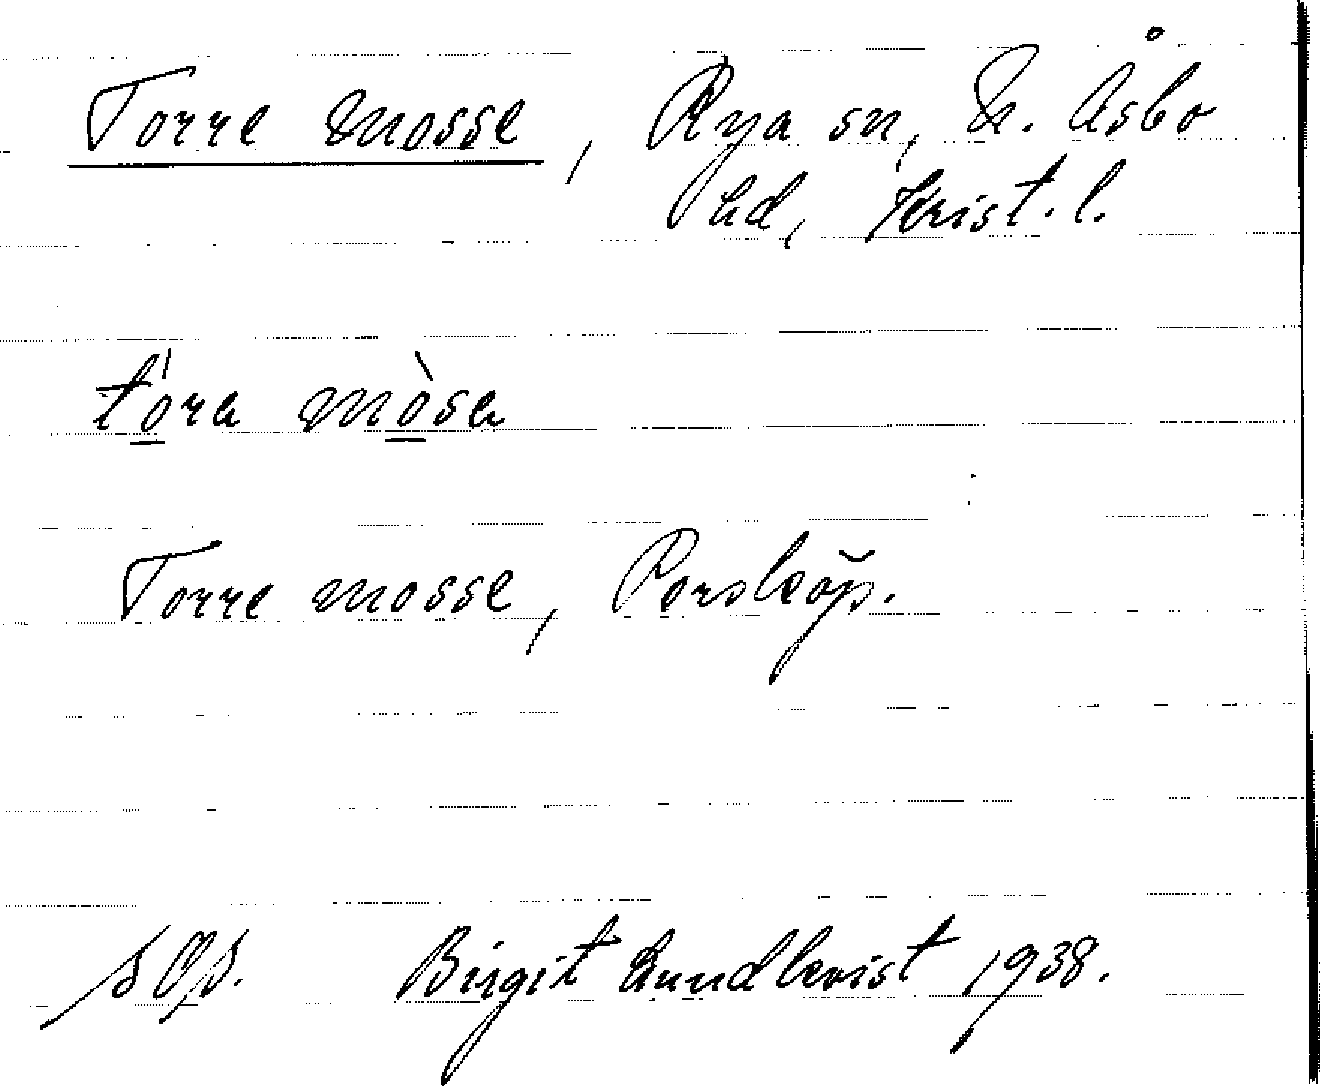 Torre mosse, Rya sn, N. Åsbo
hd, Krist. l.
tòra mòsa
Torre mosse, Porsköp.
Birgit Lundkvist 1938.